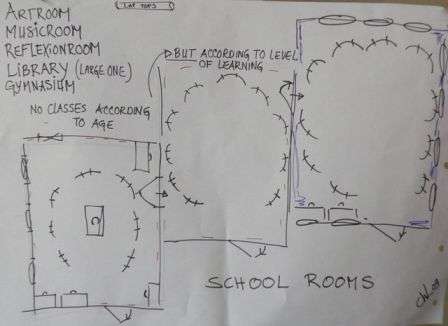 ARTROOM
MUSICROOM
REFLEXIONROOM
LIBRARY (LARGE ONE)
GYMNASIUM
LAP TOPS
NO CLASSES ACCORDING
TO AGE
BUT ACCORDING TO LEVEL
OF LEARNING
SCHOOL ROOMS